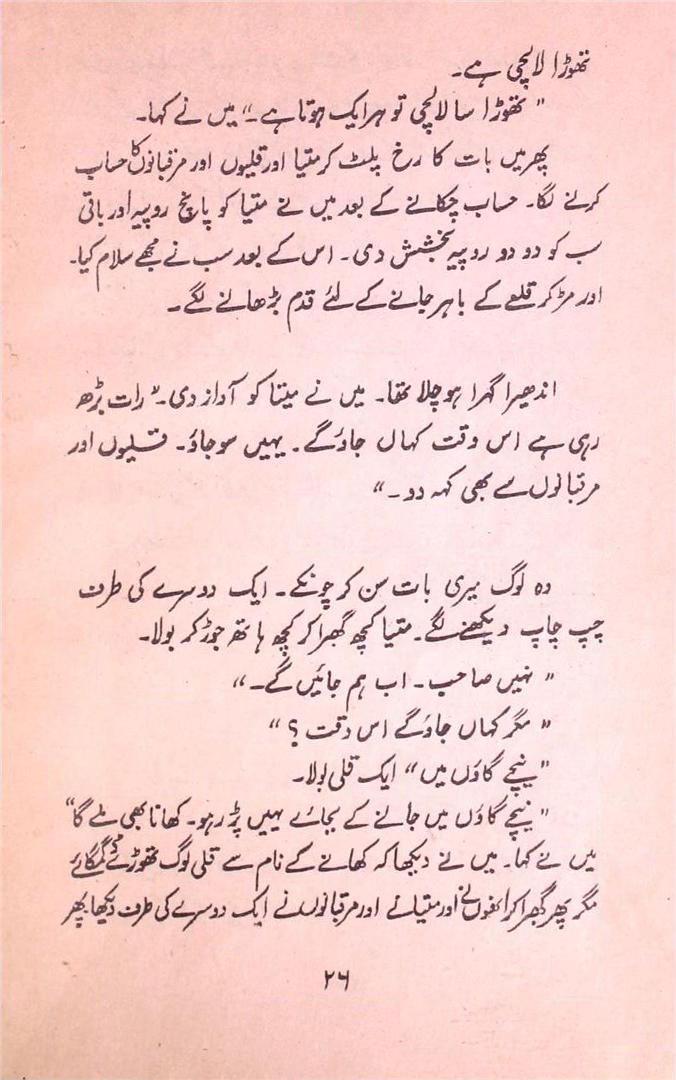 تھوڑا لالچی ہے۔
" تھوڑا سا لالچی تو ہر ایک ہوتا ہے۔" میں نے کہا۔
پھر میں بات کا رخ پلٹ کر متیا اور قلیوں اور مرقبانوں کا حساب
کرنے لگا۔ حساب چکانے کے بعد میں نے متیا کو پانچ روپیہ اور باقی
سب کو دو دو روپیہ بخشش دی۔ اس کے بعد سب نے مجھے سلام کیا۔
اور مڑ کر قلعے کے باہر جانے کے لئے قدم بڑھانے لگے۔
اندھیرا گہرا ہو چلا تھا۔ میں نے میتا کو آواز دی۔ " رات بڑھ
رہی ہے اس وقت کہاں جاؤگے۔ یہیں سو جاؤ۔ قلیوں اور
مرقبانوں سے بھی کہہ دو۔ "
وہ لوگ میری بات سن کر چونکے۔ ایک دوسرے کی طرف
چپ چاپ دیکھنے لگے۔ متیا کچھ گھبرا کر کچھ ہاتھ جوڑ کر بولا۔
" نہیں صاحب۔ اب ہم جائیں گے۔ "
" مگر کہاں جاؤگے اس وقت ؟ "
" نیچے گاؤں میں " ایک قلی بولا۔
" نیچے گاؤں میں جانے کے بجائے یہیں پڑ رہو۔ کھانا بھی ملے گا "
میں نے کہا۔ میں نے دیکھا کہ کھانے کے نام سے قلی لوگ تھوڑے ڈگمگائے
مگر پھر گھبرا کر انھوں نے اور متیا نے اور مرقبانوں نے ایک دوسرے کی طرف دیکھا پھر
۲۶